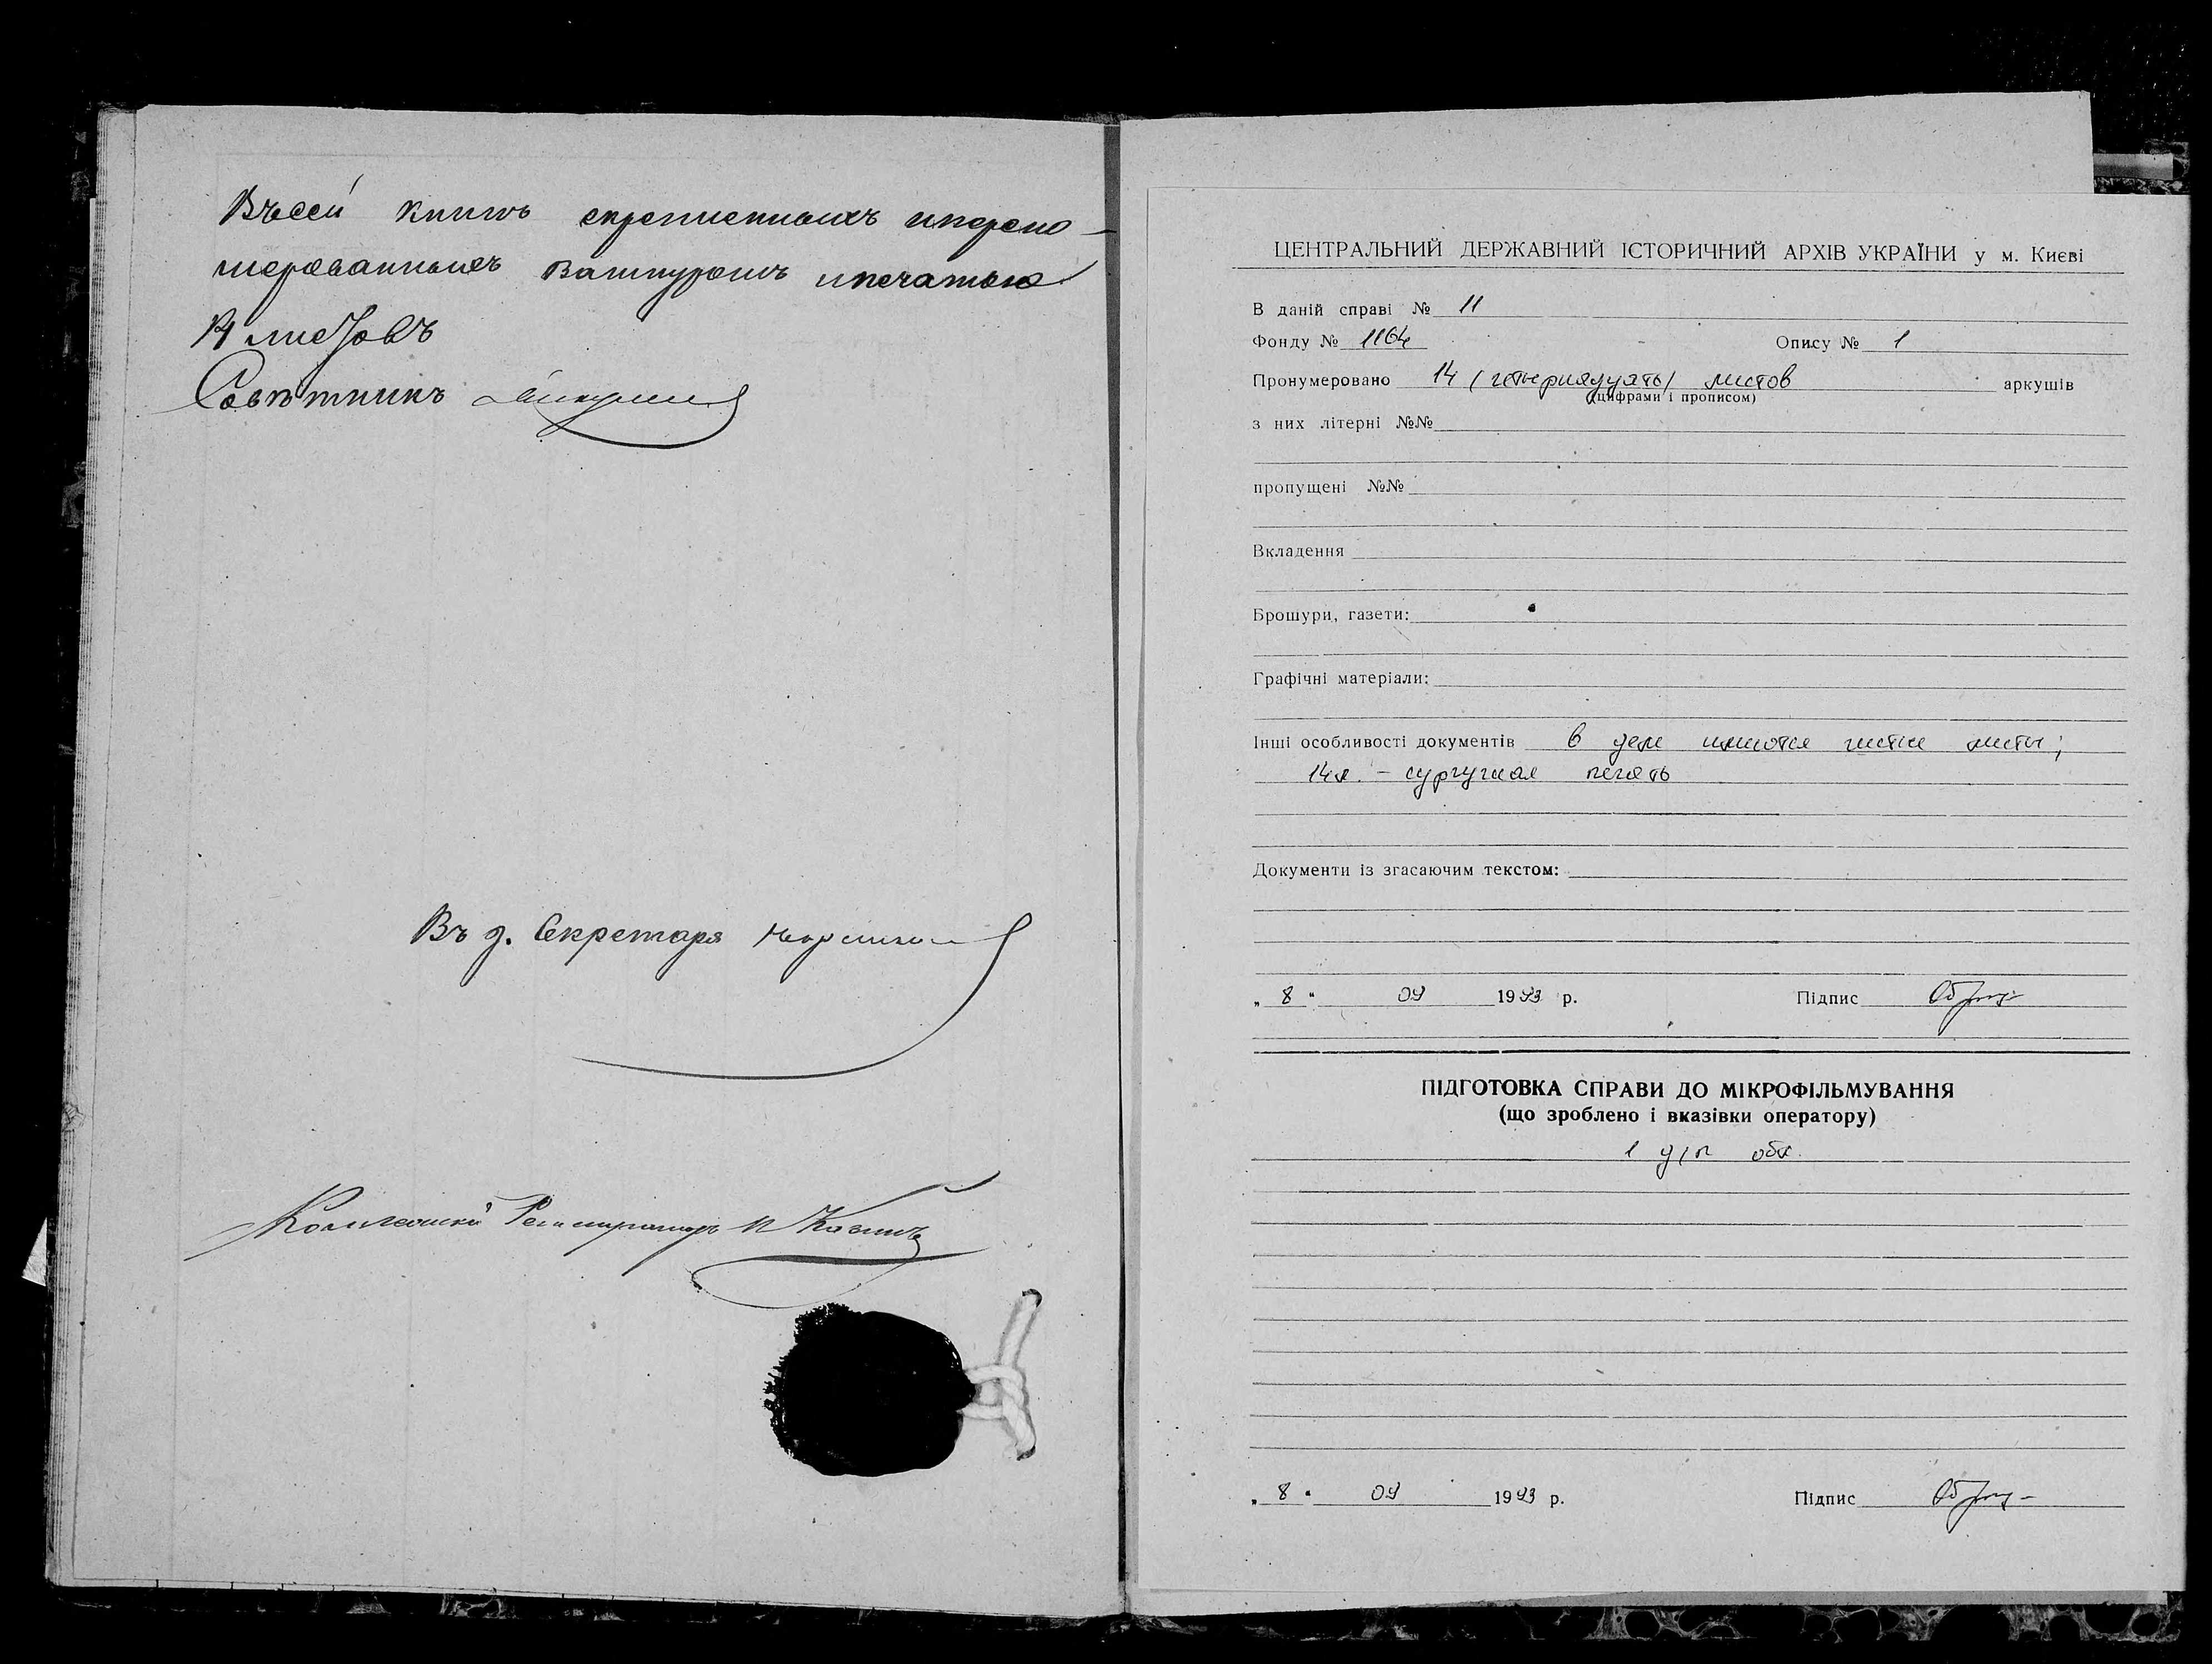 Въсей книгѣ скрепленныхъ ипероно-
мерованныхъ ипечатью
14 листовъ
Совѣтникъ
Въ д. Секретаря
Коллежскій Регистраторъ
ЦЕНТРАЛЬНИЙ ДЕРЖАВНИЙ ІСТОРИЧНИЙ АРХІВ УКРАЇНИ у м. Києві
В даній справі № 11
Фонду № 1164 Опису № 1
Пронумеровано 14 (четырнядцять) листов аркушів
(цифрами і прописом)
з них літерні №№
пропущені №№
Вкладення
Брошури, газети:
Графічні матеріали:
Інші особливості документів в деле имеются чистые листы;
14л. – сургучная печать
Документи із згасаючим текстом:
„ 8 “ 09 1993 р. Підпис
ПІДГОТОВКА СПРАВИ ДО МІКРОФІЛЬМУВАННЯ
(що зроблено і вказівки оператору)
1 д/п
„ 8 “ 09 1993 р. Підпис